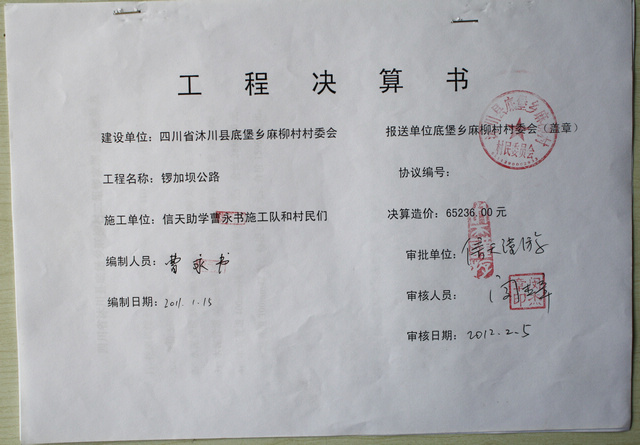 工程决算书
建设单位：四川省沐川县底堡乡麻柳村村委会
报送单位底堡乡麻柳村村委会（盖章）
工程名称：锣加坝公路
协议编号：
施工单位：信天助学曹永书施工队和村民们
决算造价：65236.00元
编制人员：曹永书
审批单位：信天漫游
编制日期：2011.1.15
审核人员：
审核日期：2012.2.5
村民委员会